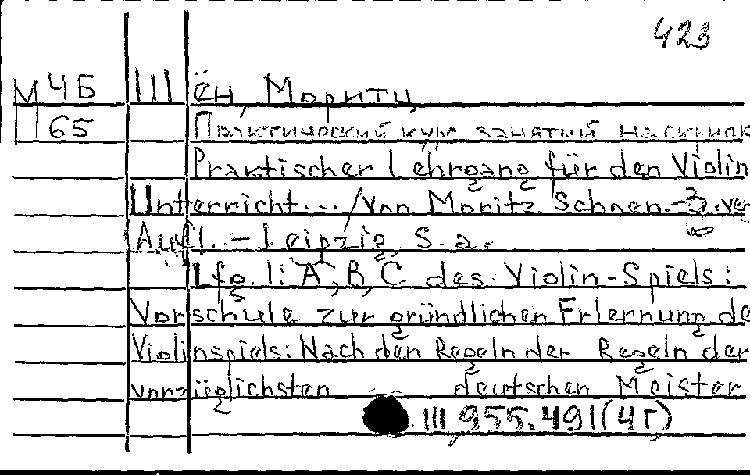 423
М 4Б Шён, Моритц
П 65 Практический курс занятий на скрипк
Praktischer Lehrgang für den Violin
Unterricht... / Von Moritz Schoen. - 3. ver
Aufl. - Leipzig, S. a.
Lfg. 1: A, B, C des Violin-Spiels:
Vorschule zur gründlichen Erlernung de
Violinspiels: Nach den Regeln der Regeln der
vorzüglichsten deutschen Meister
III, 955.491(4Г)